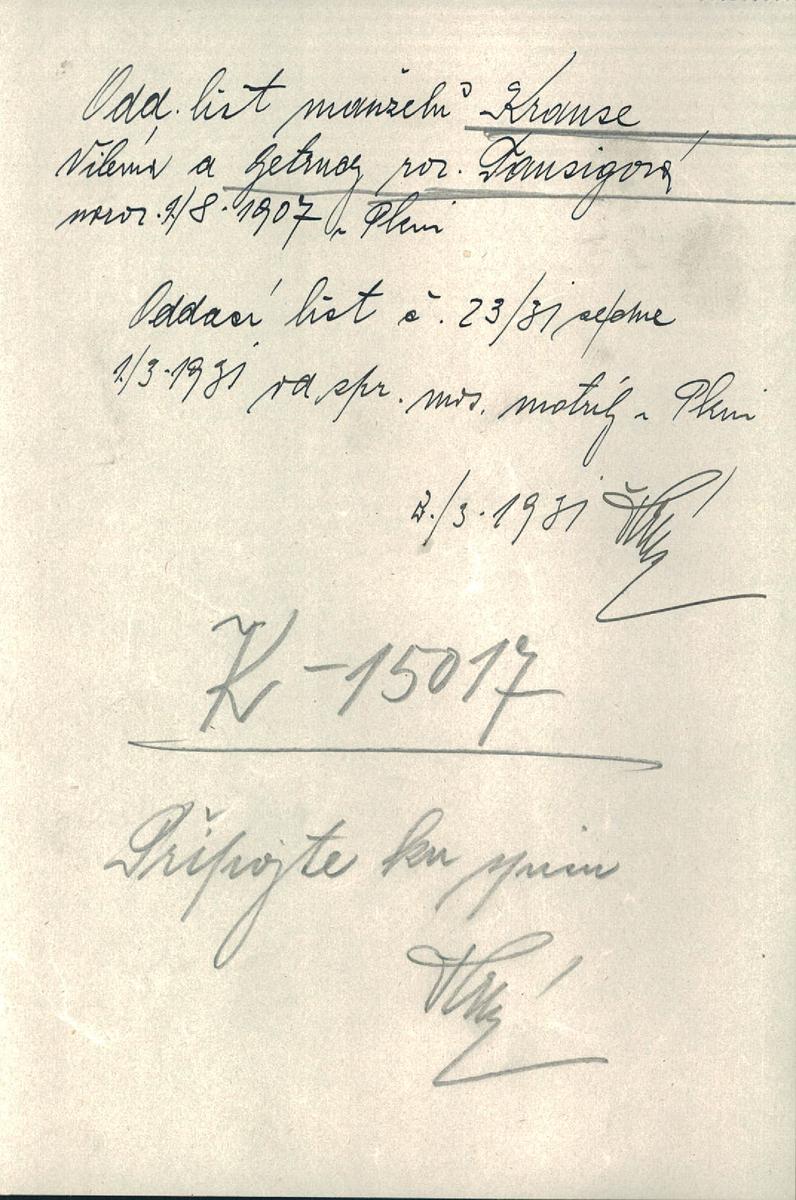 Odd. list manželů Krause
Viléma a Getrudy roz. Tausigová
naroz. 1/8. 1907 v Plzni
Oddací list č. 23/31 ze dne
1/3. 1931 od spr. žid. matriky v Plzni
2./3. 1931
K - 15017
Připojte ku spisu